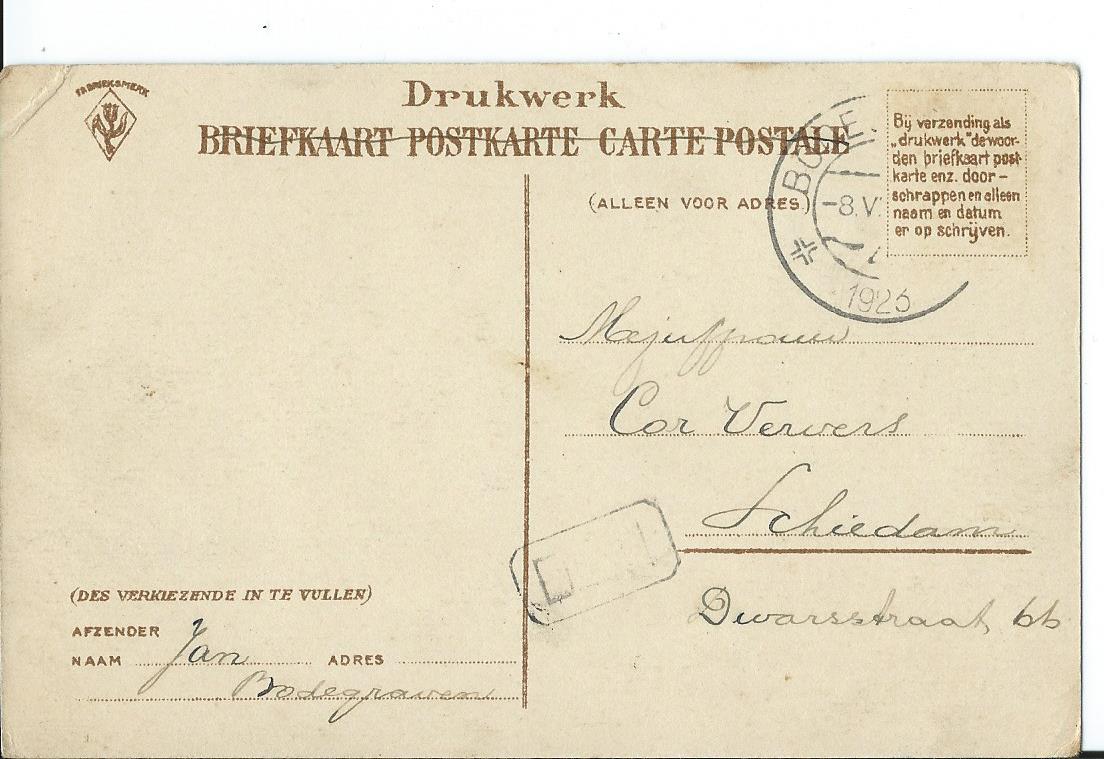 FABRIEKSMERK
Drukwerk
BRIEFKAART POSTKARTE CARTE POSTALE
(ALLEEN VOOR ADRES)
Bij verzending als
„drukwerk” de woor-
den briefkaart post-
karte enz. door-
schrappen en alleen
naam en datum
er op schrijven.
BO
-8.V
1923
Mejuffrouw
Cor Ververs
Schiedam
Dwarsstraat 66
(DES VERKIEZENDE IN TE VULLEN)
AFZENDER
NAAM Jan ADRES
Bodegraven